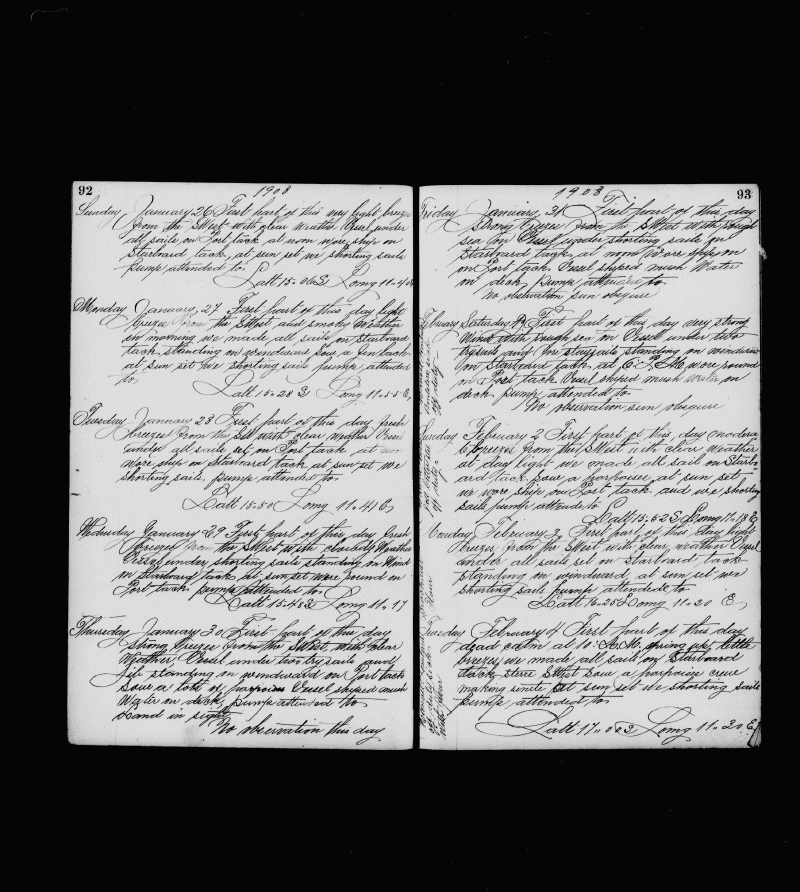 92
1908
Sunday January 26 First part of this very light breeze
from the SWest with clear weather Vessel under
all sails on Port tack at noon wore ship on
Starboard tack, at sun set we shorting sails
pump attended to
Latt 15.06 S Long 11.4
Monday January 27 First part of this day light
breeze from the SWest and smoky weather
in morning we made all sails on Starboard
tack standing on windward saw a fin back
at sun set we shorting sails pump attended
to
Latt 15.28 S Long 11.55 E,
Tuesday January 28 First part of this day fresh
breezes from the SWest with clear weather Vessel
under all sails set on Port tack at noon
wore ship on Starboard tack at sun set we
shorting sails, pump attended to
Latt 15.50 Long 11.41 E,
Wednesday January 29 First part of this day fresh
breezes from the SWest with cloudy Weather
Vessel under shorting sails standing on Wind
on Starboard tack at sun set wore round on
Port tack pump attended to
Latt 15.48 S Long 11.17
Thursday January 30 First part of this day
strong breeze from the SWest, with clear
Weather Vessel under two trysails and
jib standing on windward on Port tack
saw a lot of porpoises Vessel shiped much
Water on deck pump attended to
Land in sight
No observation this day
1908
93
Friday January 31 First part of this day
strong breeze from the SWest with rough
sea on Vessel under shorting sails on
Starboard tack at noon Wore ship on
on Port tack Vessel shiped much Water
on deck pump attended to
No observation sun obsgure
February Saturday First part of this day very strong
Wind with rough sea on Vessel under two
trysails and fore staysails standing on windward
on Starboard tack at 6 P.M. wore round
on Port tack Vessel shiped much Water on
deck pump attended to
No observation sun obsgure
Sunday February 2 First part of this day modera
te breezes from the SWest with clear Weather
at day light we made all sail on Starbo
ard tack saw a porpoises at sun set
we wore ship on Port tack and we shorting
sails pump attended to
Latt 15.52 S Long 11.13 E
Monday February 3 First part of this day light
breezes from the SWest with clear weather Vessel
under all sails set on Starboard tack
standing on windward at sun set we
shorting sails pump attended to
Latt 16.25 S Long 11.20 E,
Tuesday February 4 First part of this day
dead calm at 10 A.M. spring up little
breezes we made all sails on Starboard
tack steer SWest saw a porpoises crew
making at sun set we shorting sails
pump attended to
Latt 17.00 S Long 11.20 E